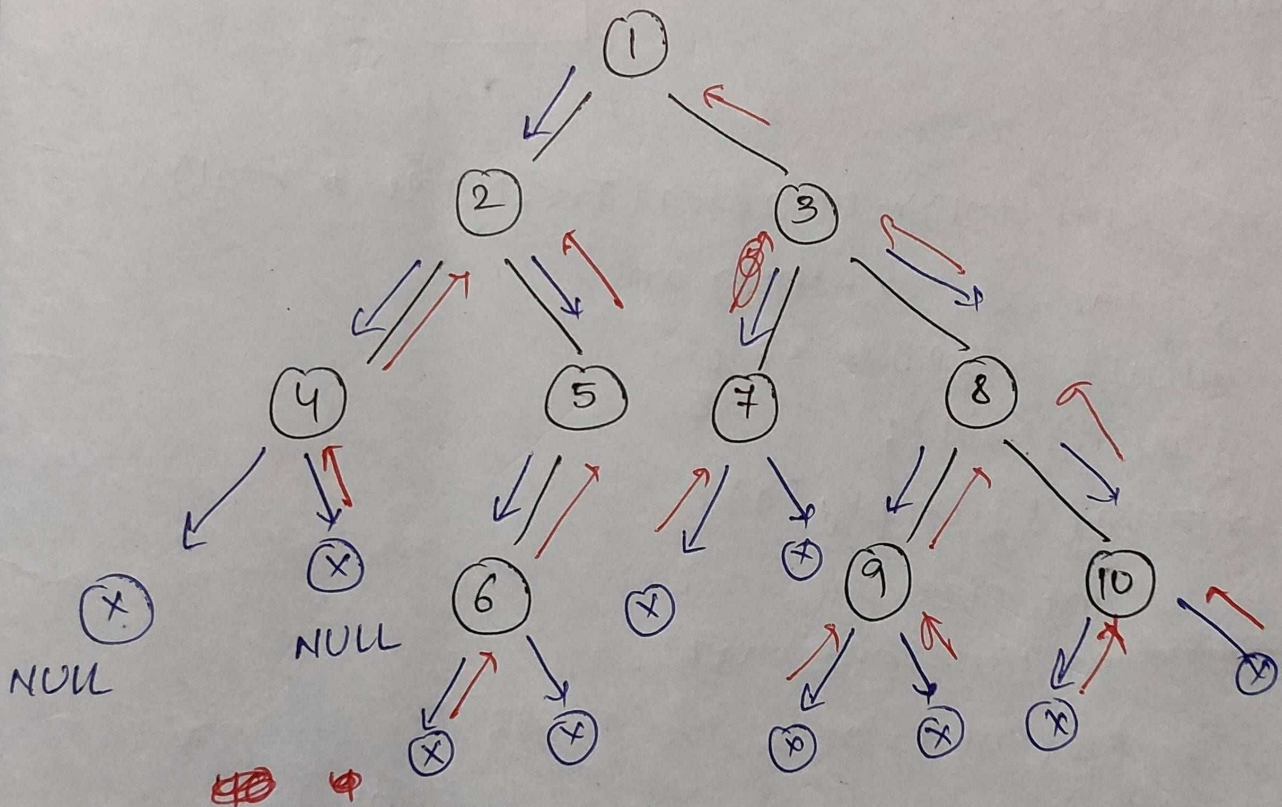 1
2 3
4 5 7 8
X X 6 X X 9 10
NULL NULL
X X X X X X